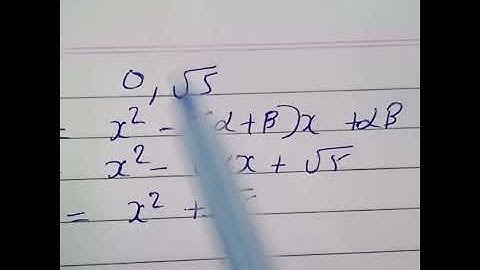 0, √5
= x² - (α+β)x + αβ
= x² - x + √5
= x² +